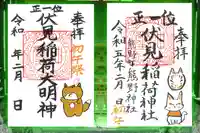 奉拝
正一位
伏見稲荷大明神
初午祭
令和 年二月 日
奉拝
正一位
伏見稲荷神社
熊野町熊野神社
令和五年二月 日